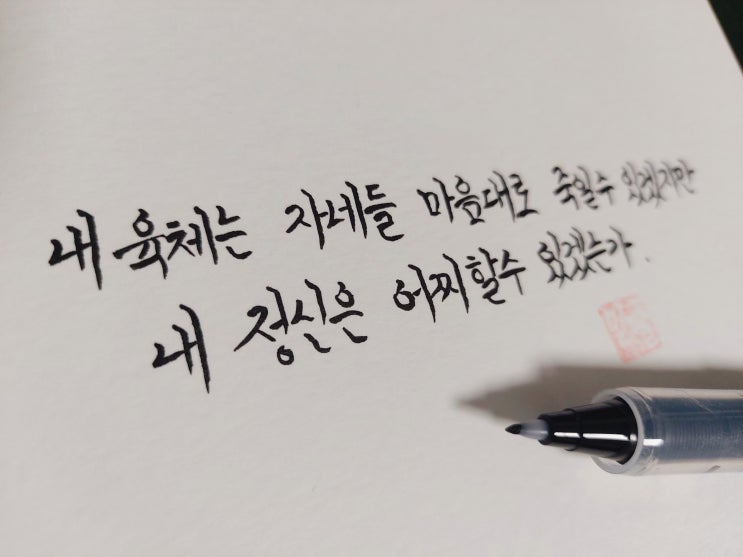 내 육체는 자네들 마음대로 죽일수 있겠지만
내 정신은 어찌할수 있겠는가.